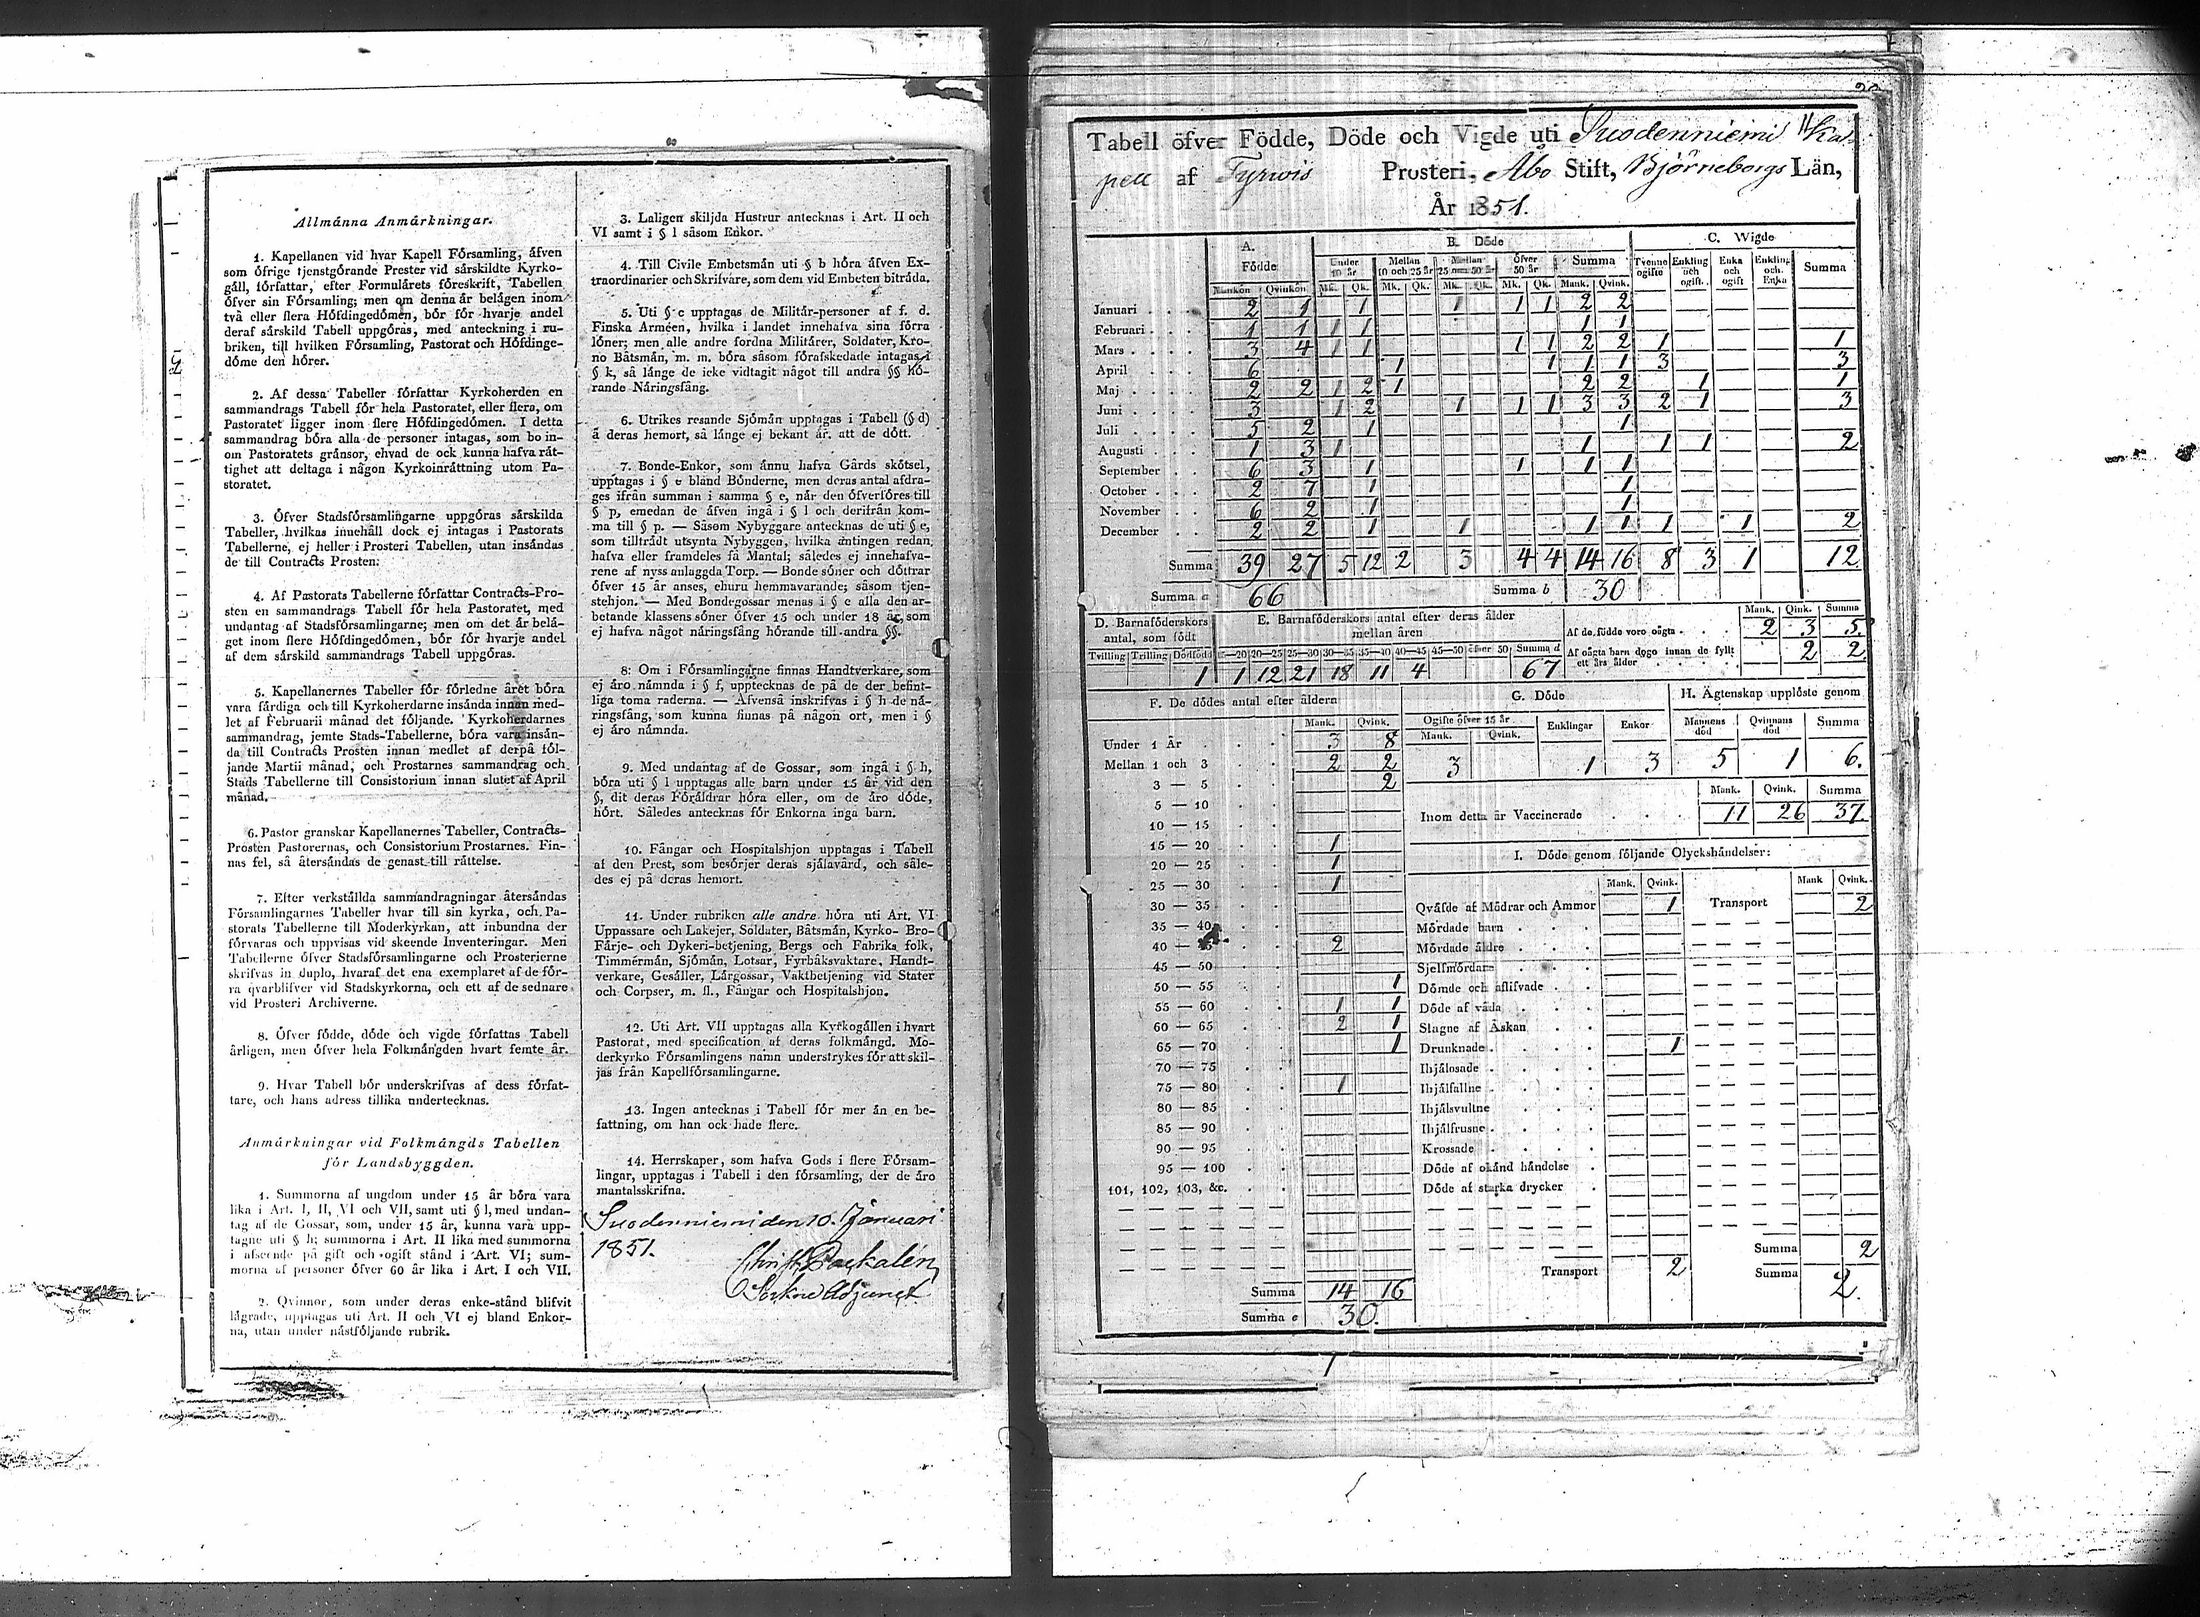 8
Allmänna Anmärkningar.
1. Kapellanen vid hvar Kapell Församling, äfven
som öfrige tjenstgörande Prester vid särskildte Kyrko-
gäll, författar, efter Formulärets föreskrift, Tabellen
öfver sin Församling; men om denna är belägen inom
två eller flera Höfdingedömen, bör för hvarje andel
deraf särskild Tabell uppgöras, med anteckning i ru-
briken, till hvilken Församling, Pastorat och Höfdinge-
döme den hörer.
2. Af dessa Tabeller författar Kyrkoherden en
sammandrags Tabell för hela Pastoratet, eller flera, om
Pastoratet ligger inom flere Höfdingedömen. I detta
sammandrag böra alla de personer intagas, som bo in-
om Pastoratets gränsor, ehvad de ock kunna hafva rät-
tighet att deltaga i någon Kyrkoinrättning utom Pa-
storatet.
3. Öfver Stadsförsamlingarne uppgöras särskilda
Tabeller, hvilkas innehåll dock ej intagas i Pastorats
Tabellerne, ej heller i Prosteri Tabellen, utan insändas
de till Contracts Prosten:
4. Af Pastorats Tabellerne författar Contracts-Pro-
sten en sammandrags Tabell för hela Pastoratet, med
undantag af Stadsförsamlingarne; men om det är belä-
get inom flere Höfdingedömen, bör för hvarje andel
af dem särskild sammandrags Tabell uppgöras.
5. Kapellanernes Tabeller för förledne året böra
vara färdiga och till Kyrkoherdarne insända innan med-
let af Februarii månad det följande. Kyrkoherdarnes
sammandrag, jemte Stads-Tabellerne, böra vara insän-
da till Contracts Prosten innan medlet af derpå föl-
jande Martii månad, och Prostarnes sammandrag och
Stads Tabellerne till Consistorium innan slutet af April
månad.
6. Pastor granskar Kapellanernes Tabeller, Contracts-
Prosten Pastorernas, och Consistorium Prostarnes. Fin-
nas fel, så återsändas de genast till rättelse.
7. Efter verkställda sammandragningar återsändas
Församlingarnes Tabeller hvar till sin kyrka, och Pa-
storats Tabellerne till Moderkyrkan, att inbundna der
förvaras och uppvisas vid skeende Inventeringar. Men
Tabellerne öfver Stadsförsamlingarne och Prosterierne
skrifvas in duplo, hvaraf det ena exemplaret af de för-
ra qvarblifver vid Stadskyrkorna, och ett af de sednare
vid Prosteri Archiverne.
8. Öfver födde, döde och vigde författas Tabell
årligen, men öfver hela Folkmängden hvart femte år.
9. Hvar Tabell bör underskrifvas af dess förfat-
tare, och hans adress tillika undertecknas.
Anmärkningar vid Folkmängds Tabellen
för Landsbyggden.
1. Summorna af ungdom under 15 år böra vara
lika i Art. I, II, VI och VII, samt uti § l, med undan-
tag af de Gossar, som, under 15 år, kunna vara upp-
tagne uti § h; summorna i Art. II lika med summorna
i afseende på gift och ogift stånd i Art. VI; sum-
morna af personer öfver 60 år lika i Art. I och VII.
2. Qvinnor, som under deras enke-stånd blifvit
lägrade, upptagas uti Art. II och VI ej bland Enkor-
na, utan under nästföljande rubrik.
3. Laligen skiljda Hustrur antecknas i Art. II och
VI samt i § l såsom Enkor.
4. Till Civile Embetsmän uti § b höra äfven Ex-
traordinarier och Skrifvare, som dem vid Embeten biträda.
5. Uti § c upptagas de Militär-personer af f. d.
Finska Arméen, hvilka i landet innehafva sina förra
löner; men alle andre fordna Militärer, Soldater, Kro-
no Båtsmän, m. m. böra såsom förafskedade intagas i
§ k, så länge de icke vidtagit något till andra §§ hö-
rande Näringsfång.
6. Utrikes resande Sjömän upptagas i Tabell (§ d)
å deras hemort, så länge ej bekant är, att de dött.
7. Bonde-Enkor, som ännu hafva Gårds skötsel,
upptagas i § e bland Bönderne, men deras antal afdra-
ges ifrån summan i samma § e, när den öfverföres till
§ p, emedan de äfven ingå i § l och derifrån kom-
ma till § p. — Såsom Nybyggare antecknas de uti § e,
som tillträdt utsynta Nybyggen, hvilka äntingen redan
hafva eller framdeles få Mantal; således ej innehafva-
rene af nyss anlaggda Torp. — Bonde söner och döttrar
öfver 15 år anses, ehuru hemmavarande, såsom tjen-
stehjon. — Med Bondegossar menas i § e alla den ar-
betande klassens söner öfver 15 och under 18 år, som
ej hafva något näringsfång hörande till andra §§.
8: Om i Församlingarne finnas Handtverkare, som
ej äro nämnda i § f, upptecknas de på de der befint-
liga toma raderna. — Äfvenså inskrifvas i § h de nä-
ringsfång, som kunna finnas på någon ort, men i §
ej äro nämnda.
9. Med undantag af de Gossar, som ingå i § h,
böra uti § l upptagas alle barn under 15 år vid den
§, dit deras Föräldrar höra eller, om de äro döde,
hört. Således antecknas för Enkorna inga barn.
10. Fångar och Hospitalshjon upptagas i Tabell
af den Prest, som besörjer deras själavård, och såle-
des ej på deras hemort.
11. Under rubriken alle andre höra uti Art. VI
Uppassare och Lakejer, Soldater, Båtsmän, Kyrko- Bro-
Färje- och Dykeri-betjening, Bergs och Fabriks folk,
Timmermän, Sjömän, Lotsar, Fyrbåksvaktare, Handt-
verkare, Gesäller, Lärgossar, Vaktbetjening vid Stater
och Corpser, m. fl., Fångar och Hospitalshjon.
12. Uti Art. VII upptagas alla Kyrkogällen i hvart
Pastorat, med specification af deras folkmängd. Mo-
derkyrko Församlingens namn understrykes för att skil-
jas från Kapellförsamlingarne.
13. Ingen antecknas i Tabell för mer än en be-
fattning, om han ock hade flere.
14. Herrskaper, som hafva Gods i flere Försam-
lingar, upptagas i Tabell i den församling, der de äro
mantalsskrifna.
Suodenniemi den 10. Januari
1851.
Sockne Adjunct
Tabell öfver Födde, Döde och Vigde uti Suodenniemi Ka-
pell af Tyrwis Prosteri, Åbo Stift, Björneborgs Län,
År 1851.
A. Födde B. Döde C. Wigde
Under 10 år Mellan 10 och 25 år Mellan 25 och 50 år Öfver 50 år Summa Tvenne ogifte Enkling och ogift. Enka och ogift Enkling och Enka Summa
Mankön Qvinkön Mk. Qk. Mk. Qk. Mk. Qk. Mk. Qk. Mank. Qvink.
Januari 2 1 1 1 1 1 2 2
Februari 1 1 1 1 1 1
Mars 3 4 1 1 1 1 2 2 1 1
April 6 1 1 1 1 3 3
Maj 2 2 1 2 1 2 2 1 1
Juni 3 1 2 1 1 1 3 3 2 1 3
Juli 5 2 1 1
Augusti 1 3 1 1 1 1 2
September 6 3 1 1 1 1
October 2 7 1 1
November 6 2 1 1
December 2 2 1 1 1 1 1 1 2
Summa 39 27 5 12 2 3 4 4 14 16 8 3 1 12
Summa a 66 Summa b 30
D. Barnaföderskors antal, som född
Tvilling Trilling Dödfödd
1
E. Barnaföderskors antal efter deras ålder
mellan åren
15—20 20—25 25—30 30—35 35—40 40—45 45—50 öfver 50 Summa d
1 12 21 18 11 4 67
Mank. Qink. Summa
Af de födde voro oägta 2 3 5.
Af oägta barn dogo innan de fyllt
ett års ålder 2 2.
F. De dödes antal efter åldern
Mank. Qvink.
Under 1 År 3 8
Mellan 1 och 3 2 2
3 — 5 2
5 — 10
10 — 15
15 — 20 1
20 — 25 1
25 — 30 1
30 — 35
35 — 40
40 — 45 2
45 — 50
50 — 55 1
55 — 60 1 1
60 — 65 2 1
65 — 70 1
70 — 75
75 — 80 1
80 — 85
85 — 90
90 — 95
95 — 100
101, 102, 103, &c.
Summa 14 16
Summa e 30.
G. Döde
Ogifte öfver 15 år Enklingar Enkor
Mank. Qvink.
3 1 3
H. Ägtenskap upplöste genom
Mannens död Qvinnans död Summa
5 1 6.
Mank. Qvink. Summa
Inom detta år Vaccinerade 11 26 37.
I. Döde genom följande Olyckshändelser:
Mank. Qvink. Mank Qvink.
Qväfde af Mödrar och Ammor 1 Transport 2
Mördade barn
Mördade äldre
Sjelfmördare
Dömde och aflifvade
Döde af våda
Slagne af Åskan
Drunknade 1
Ihjälosade
Ihjälfallne
Ihjälsvultne
Ihjälfrusne
Krossade
Döde af okänd händelse
Döde af starka drycker
Summa 2
Transport 2 Summa 2.